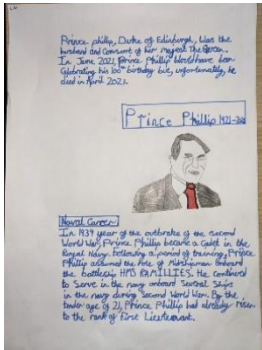 Prince phillip, Duke of Edinburgh, was the
husband and Consort of her majesty The Queen.
In June 2021, Prince Phillip would have been
Celebrating his 100th birthday but, unfortunately, he
died in April 2021.
Prince Phillip 1921-2021
Naval Career
In 1939 year of the outbrake of the second
World War, Prince Phillip became a Cadet in the
Royal Navy. Following a period of training, Prince
Phillip assumed the role of Midshipman onboard
the battleship HMS RAMILLIES. He continued
to serve in the navy onboard Several Ships
in the navy during Second World War. By the
tender age of 21, Prince Phillip had already risen
to the rank of First Lieutenant.